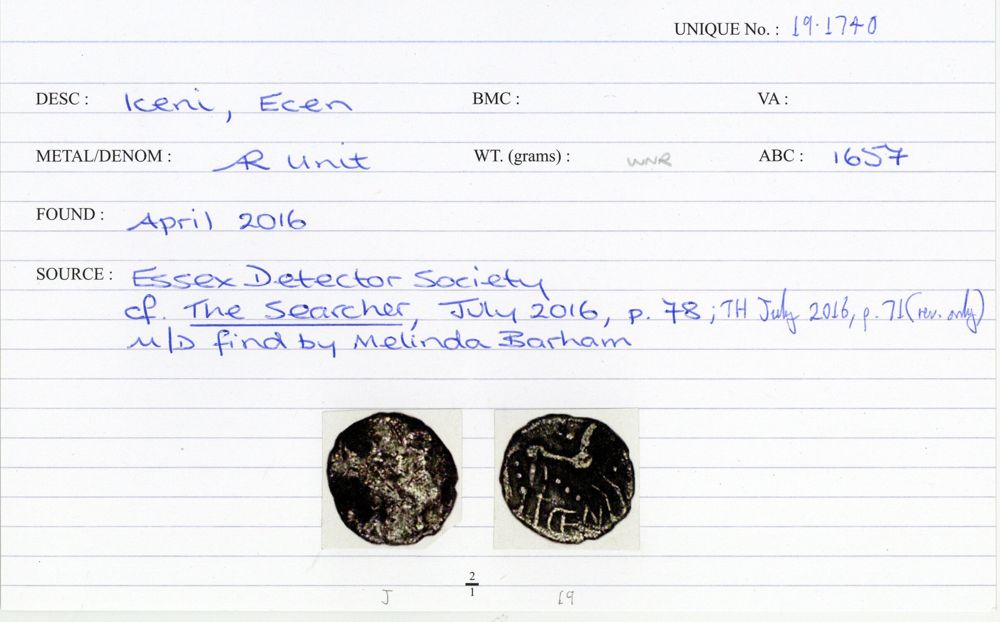 UNIQUE No. : 19.1740
DESC : Iceni, Ecen BMC : VA :
METAL/DENOM : AR Unit WT. (grams) : WNR ABC : 1657
FOUND : April 2016
SOURCE : Essex Detector Society
cf. The Searcher, July 2016, p. 78; TH July 2016, p. 71 (rev. only)
M/D find by Melinda Barham
ECEN
2
1
J 19